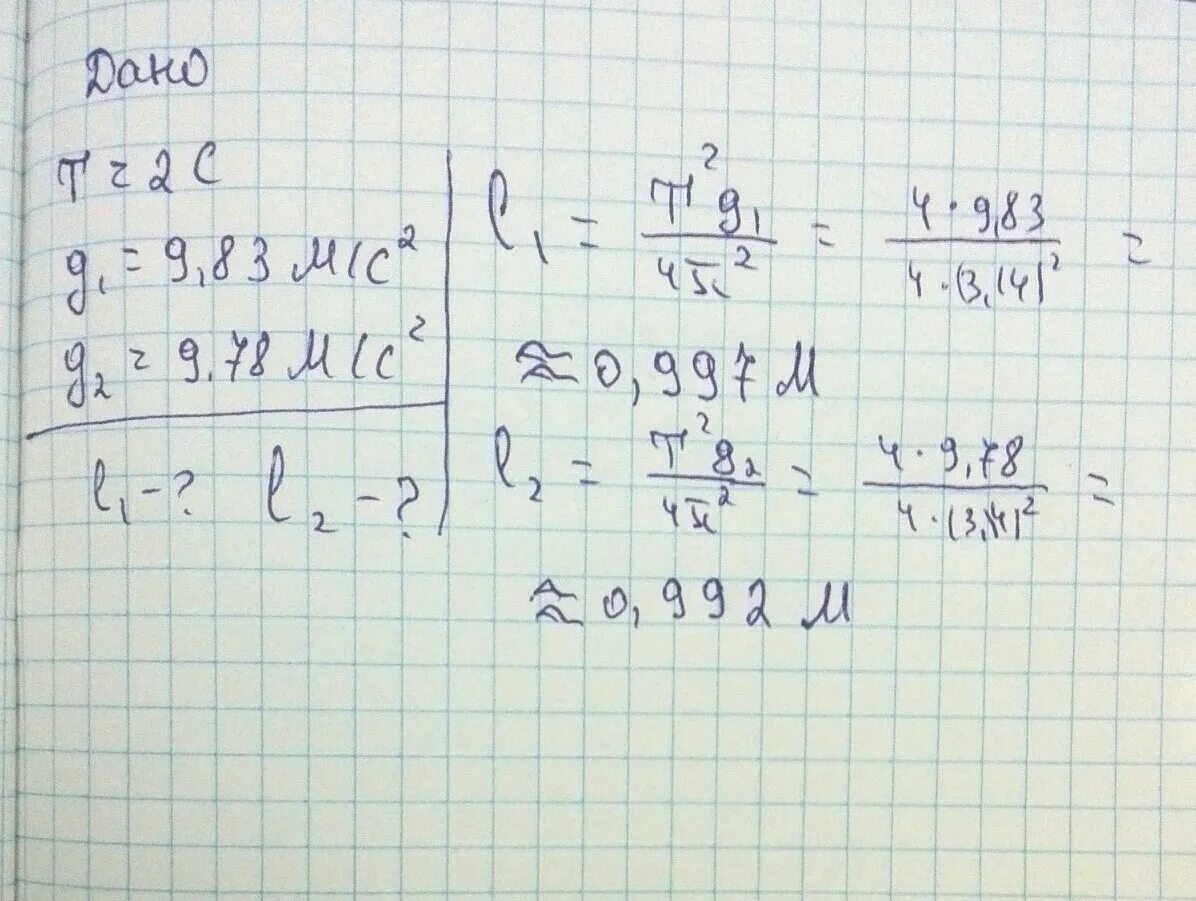 Дано
T = 2 С
g₁ = 9,83 м/с²
g₂ = 9,78 м/с²
l₁ - ? l₂ - ?
l₁ = T²g₁/4π² = 4·9,83/4·(3,14)² =
≈ 0,997 м
l₂ = T²g₂/4π² = 4·9,78/4·(3,14)² =
≈ 0,992 м